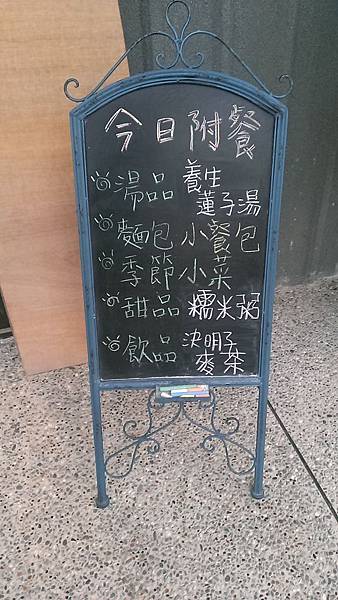 今日附餐
湯品 養生
蓮子湯
麵包 小餐包
季節小菜
甜品 糯米粥
飲品 決明子
麥茶